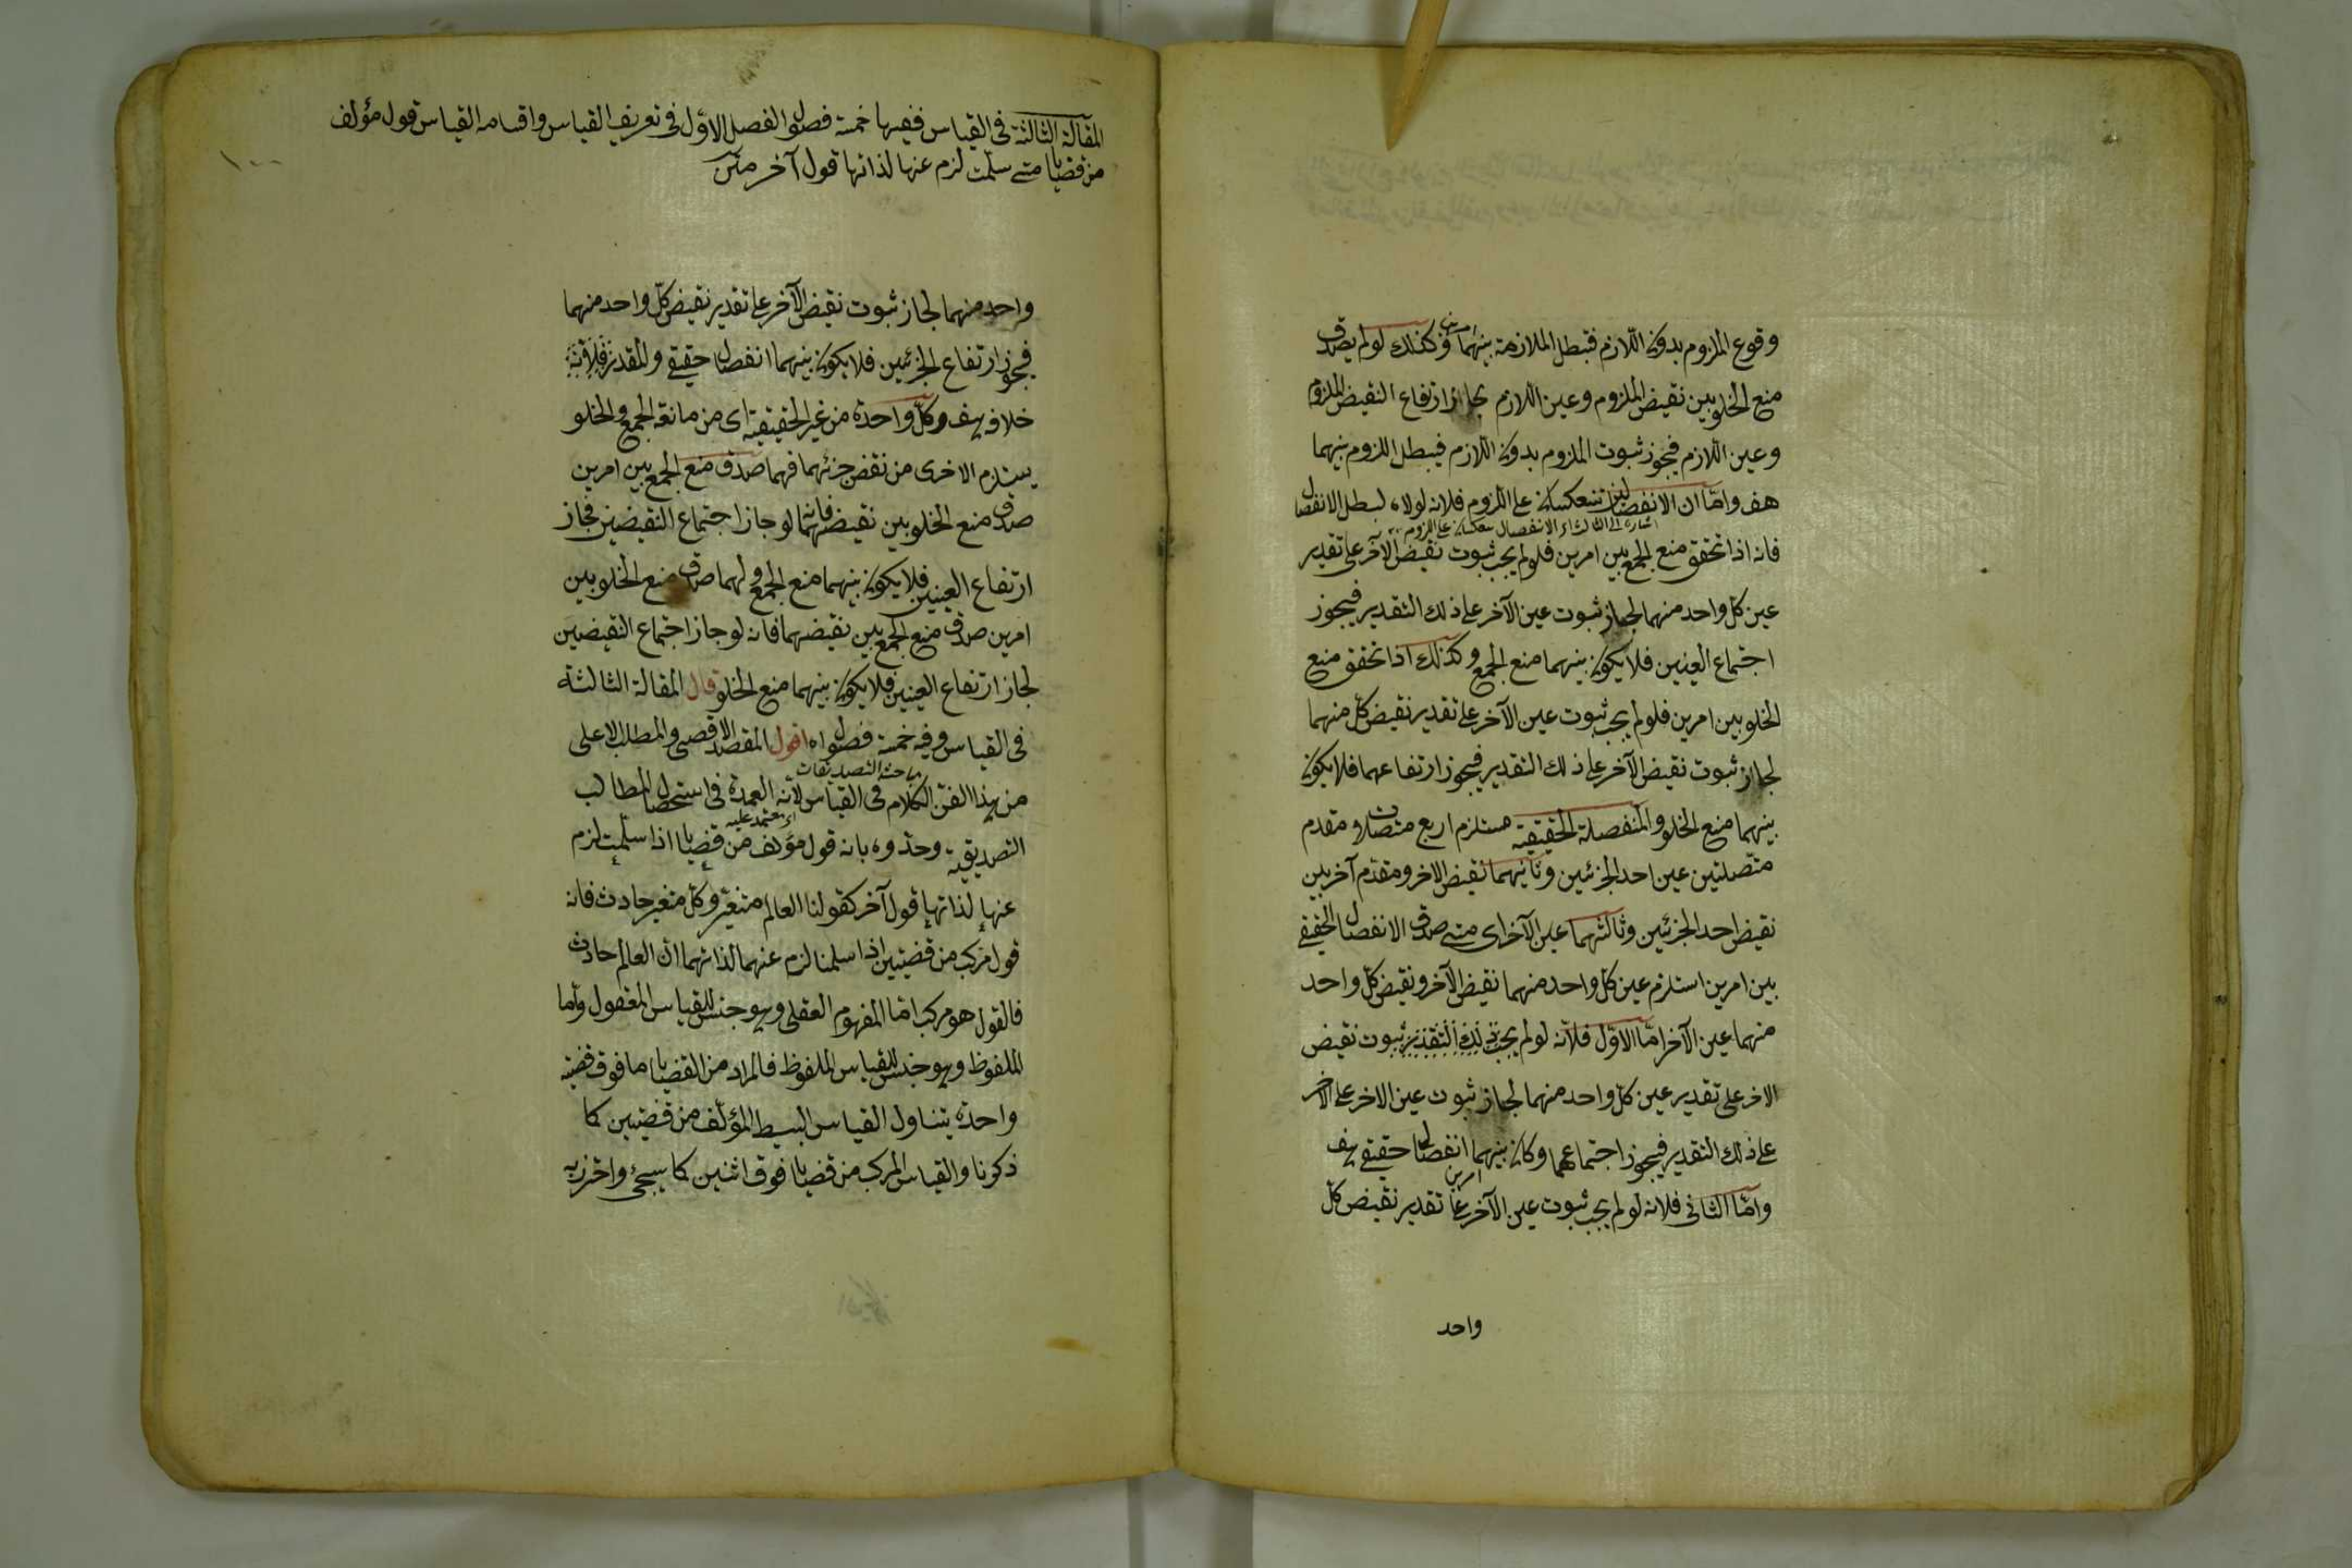 وقوع الملزوم بدون اللازم فتبطل الملازمة بينهما وكذلك لو لم يصدق
منع الخلو بين نقيض الملزوم وعين اللازم لجاز ارتفاع النقيض الملزوم
وعين اللازم فيجوز ثبوت الملزوم بدون اللازم فيبطل اللزوم بينهما
هف واما ان الانفصالين تنعكسان على اللزوم فلانه لولاه لبطل الانفصال
اشارة الى الثالث اى الانفصال ينعكسان على اللزوم
فانه اذا تحقق منع الجمع بين امرين فلو لم يجب ثبوت نقيض الآخر على تقدير
عين كل واحد منهما لجاز ثبوت عين الآخر على ذلك التقدير فيجوز
اجتماع العينين فلا يكون بينهما منع الجمع وكذلك اذا تحقق منع
الخلو بين امرين فلو لم يجب ثبوت عين الآخر على تقدير نقيض كل منهما
لجاز ثبوت نقيض الآخر على ذلك التقدير فيجوز ارتفاعهما فلا يكون
بينهما منع الخلو والمنفصلة الحقيقية مستلزم اربع متصلات مقدم
متصلتين عين احد الجزئين وثانيهما نقيض الاخر ومقدم آخريين
نقيض احد الجزئين وثالثهما عين الآخر اى متى صدق الانفصال الحقيقى
بين امرين استلزم عين كل واحد منهما نقيض الآخر ونقيض كل واحد
منهما عين الآخر امّا الاوّل فلانّه لو لم يجب ذلك التقدير ثبوت نقيض
الاخر على تقدير عين كل واحد منهما لجاز ثبوت عين الاخر على الاخر
على ذلك التقدير فيجوز اجتماعهما وكان بينهما انفصال حقيقى هف
امرين
وامّا الثانى فلانه لو لم يجب ثبوت عين الآخر على تقدير نقيض كل
واحد
المقالة الثالثة فى القياس ففيها خمسة فصول الفصل الاوّل فى تعريف القياس واقسامه القياس قول مؤلف
من قضايا متى سلّمت لزم عنها لذاتها قول آخر متن
١٠٠
واحد منهما لجاز ثبوت نقيض الآخر على تقدير نقيض كلّ واحد منهما
فيجوز ارتفاع الجزئين فلا يكون بينهما انفصال حقيقى والمقدر
خلافه هف وكلّ واحدة من غير الحقيقية اى من مانعة الجمع والخلو
يستلزم الاخرى من نقض جزئهما فهما صدق منع الجمع بين امرين
صدق منع الخلو بين نقيضهما فانه لو جاز اجتماع النقيضين فجاز
ارتفاع العينين فلا يكون بينهما منع الجمع ولهما صدق منع الخلو بين
امرين صدق منع الجمع بين نقيضهما فانه لو جاز اجتماع النقيضين
لجاز ارتفاع العينين فلا يكون بينهما منع الخلو قال المقالة الثالثة
فى القياس وفيه خمسة فصول اه اقول المقصد الاقصى والمطلب الاعلى
مباحثة التصديقات
من هذا الفنّ الكلام فى القياس لانّه العمدة فى استحصال المطالب
اى معتمد عليه
التصديقية وحدّوه بانه قول مؤلف من قضايا اذا سلّمت لزم
عنها لذاتها قول آخر كقولنا العالم متغيّر وكل متغير حادث فانه
قول مركب من قضيتين اذا سلمنا لزم عنهما لذاتهما ان العالم حادث
فالقول هو مركب امّا المفهوم العقلى وهو جنس للقياس المعقول وامّا
الملفوظ وهو جنس للقياس الملفوظ فالمراد من القضايا ما فوق قضية
واحدة يتناول القياس البسيط المؤلّف من قضيتين كما
ذكرنا والقياس المركب من قضايا فوق اثنين كما سيجئ واحترز به